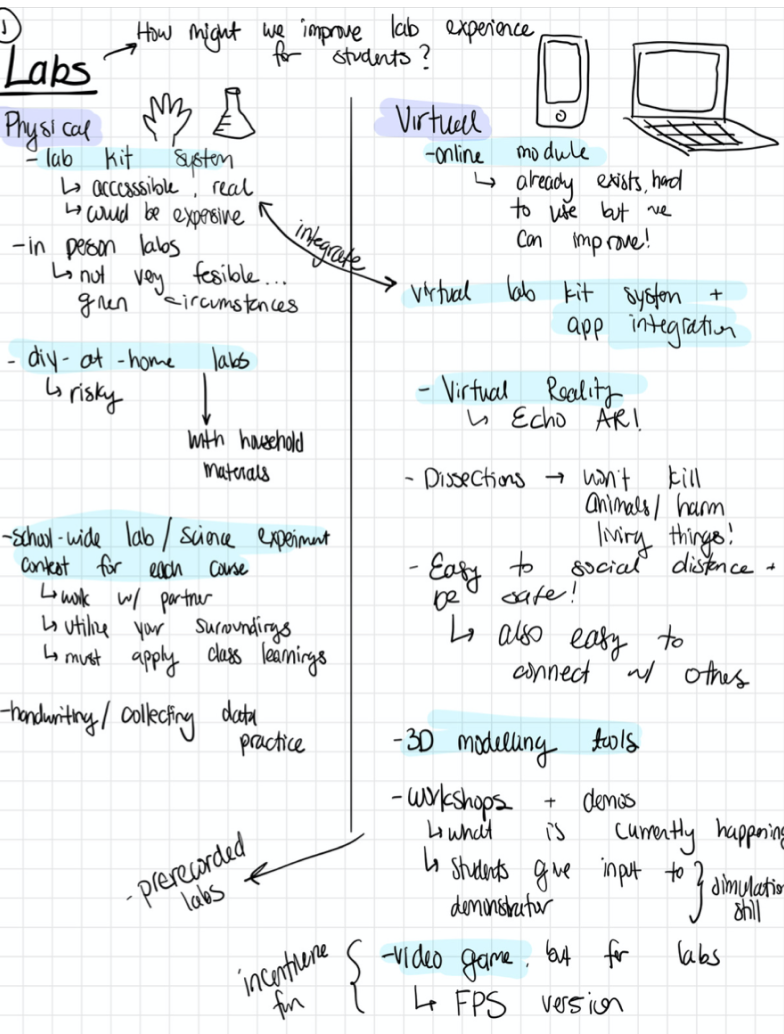 1
How might we improve lab experience
for students?
Labs
Physical
- lab kit system
↳ accessible, real
↳ could be expensive
- in person labs
↳ not very fesible...
given circumstances
- diy-at-home labs
↳ risky
with household
materials
- school-wide lab / science experiment
contest for each course
↳ work w/ partner
↳ utilize your surroundings
↳ must apply class learnings
- handwriting / collecting data
practice
- prerecorded
labs
integrate
Virtual
- online module
↳ already exists, hard
to use but we
can improve!
virtual lab kit system +
app integration
- Virtual Reality
↳ Echo AR!
- Dissections → won't kill
animals / harm
living things!
- Easy to social distance +
be safe!
↳ also easy to
connect w/ others
- 3D modelling tools
- workshops + demos
↳ what is currently happening
↳ students give input to
demonstrator
simulation
still
- video game, but for labs
↳ FPS version
fun